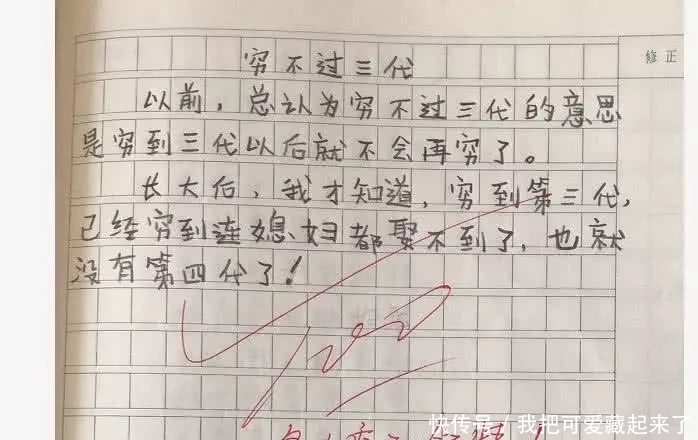 穷不过三代
修正
以前，总认为穷不过三代的意思
是穷到三代以后就不会再穷了。
长大后，我才知道，穷到第三代，
已经穷到连媳妇都娶不到了，也就
没有第四代了！
100
快传号／我把可爱藏起来了